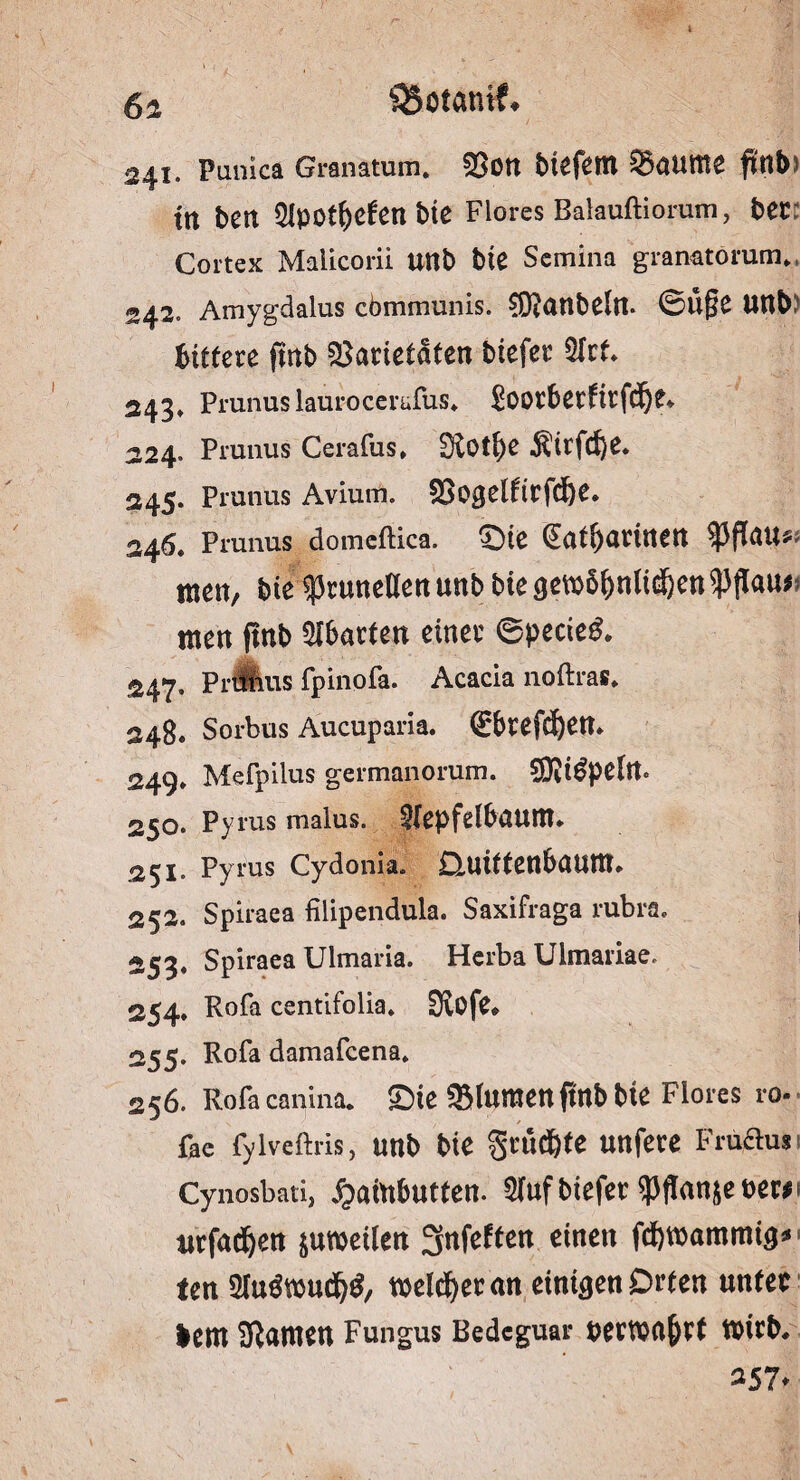 62 Botanik.
241. Punica Granatum. Von diesem Baume sind
in den Apotheken die Flores Balauſtiorum, der
Cortex Malicorii und die Semina granatorum.
242. Amygdalus communis. Mandeln. Süße und
bittere sind Varietäten dieser Art.
243. Prunus laurocerasus. Loorberkirsche.
224. Prunus Ceraſus. Rothe Kirsche.
245. Prunus Avium. Vogelkirsche.
246. Prunus domeſtica. Die Catharinen Pflau-
men, die Prunellen und die gewöhnlichen Pflau-
men sind Abarten einer Species.
247. Prunus ſpinoſa. Acacia noſtras.
248. Sorbus Aucuparia. Ebreschen.
249. Meſpilus germanorum. Mispeln.
250. Pyrus malus. Aepfelbaum.
251. Pyrus Cydonia. Quittenbaum.
252. Spiraea filipendula. Saxifraga rubra.
253. Spiraea Ulmaria. Herba Ulmariae.
254. Roſa centifolia. Rose.
255. Roſa damaſcena.
256. Roſa canina. Die Blumen sind die Flores ro-
ſae ſylveſtris, und die Früchte unsere Fructus
Cynosbati, Hainbutten. Auf dieser Pflanze ver-
ursachen zuweilen Insekten einen schwammig-
ten Auswuchs, welcher an einigen Orten unter
dem Namen Fungus Bedeguar verwahrt wird.
257.